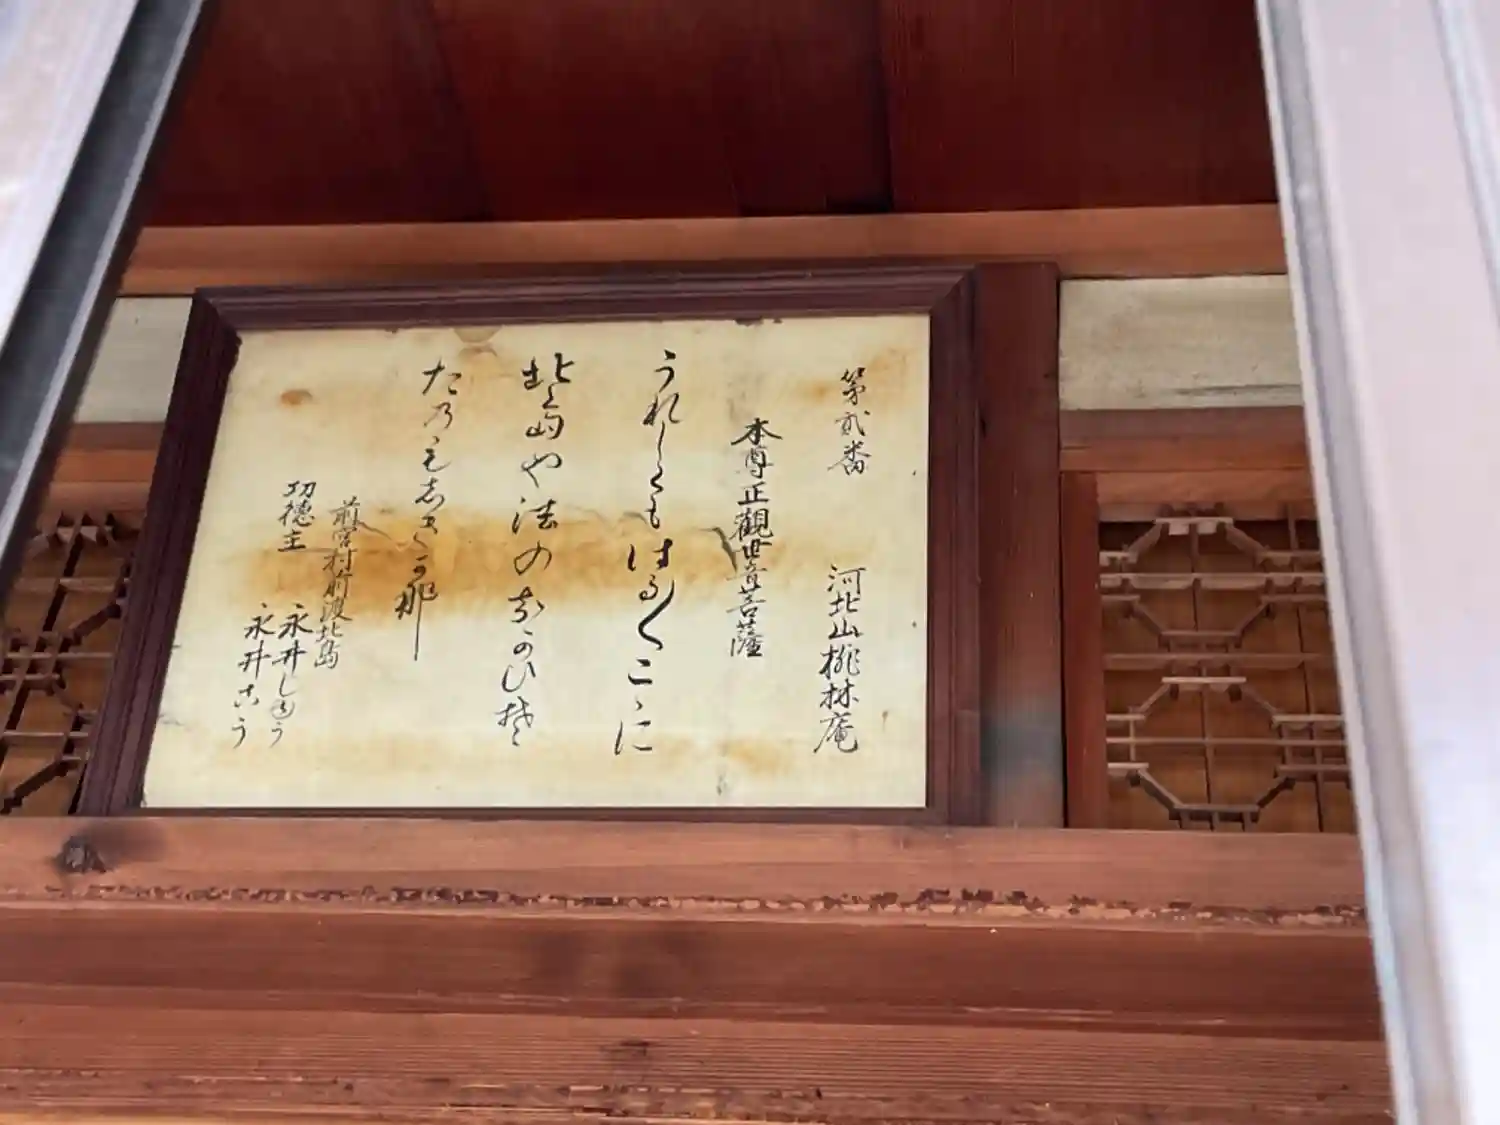 第弐番 河北山桃林庵
本尊正觀世音菩薩
うれしくもはる〱こゝに
北嶋や法のちかひ
たのもしきか那
前宮村前渡北島
功徳主 永井し う
永井こう